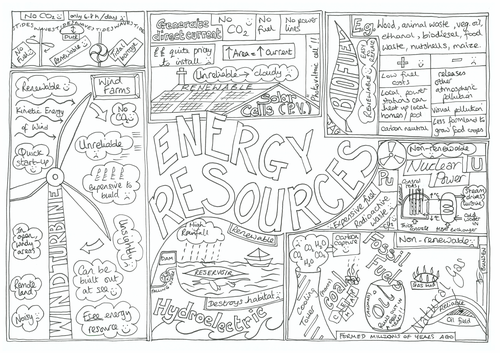 NO CO₂
only 6 hrs/day
TIDES WAVES TIDES WAVES TIDES WAVES
Duck
Renewable
Tidal barrage
Generate
direct current
NO
CO₂
No
fuel
No power
lines
£££ quite pricy
to install
↑ Area = ↑ Current
Unreliable → cloudy
RENEWABLE
Solar
Cells (P.V.)
Photovoltaic cell!!
BIOFUEL
Renewable
E.g.
Wood, animal waste, veg. oil,
ethanol, biodiesel, food
waste, nutshells, maize.
+
-
Low fuel
costs
releases
other
atmospheric
pollution
Local, power
stations can
heat up local
homes / pod
Visual pollution
Less farmland to
grow food crops
carbon neutral
Renewable
Wind
Farms
Kinetic Energy
of Wind
No
CO₂
Quick
start-up
Unreliable
£££
expensive to
build
In
open,
windy
areas
Unsightly
Remote
land
Can be
built out
at sea
Noisy
Free energy
resource
WIND TURBINE
ENERGY
RESOURCES
High
Rainfall
Renewable
DAM
RESERVOIR
Destroys habitat
Hydroelectric
Non-renewable
Nuclear
Power
Pu
U
Control
rods
Steam
drives
turbine
Cold
water
Heat exchanger
- Expensive
- Radioactive
waste
CO₂ H₂O
Carbon
capture
Cooling
Tower
Coal
Fossil
Fuel
Oil
Non-renewable
Natural Gas
Gas Hob
Reliable
Oil field
FORMED MILLIONS OF YEARS AGO